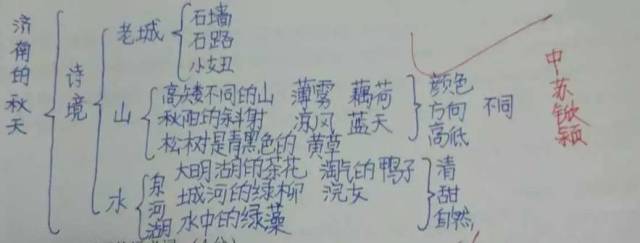 济南的秋天
诗境
老城
石墙
石路
小妞
山
高矮不同的山 薄雾 藕荷
秋阳的斜射 凉风 蓝天
松树是青黑色的 黄草
颜色
方向 不同
高低
水
泉
河
湖
大明湖的荷花 淘气的鸭子
城河的绿柳 浣女
水中的绿藻
清
甜
自然
中
苏
颖